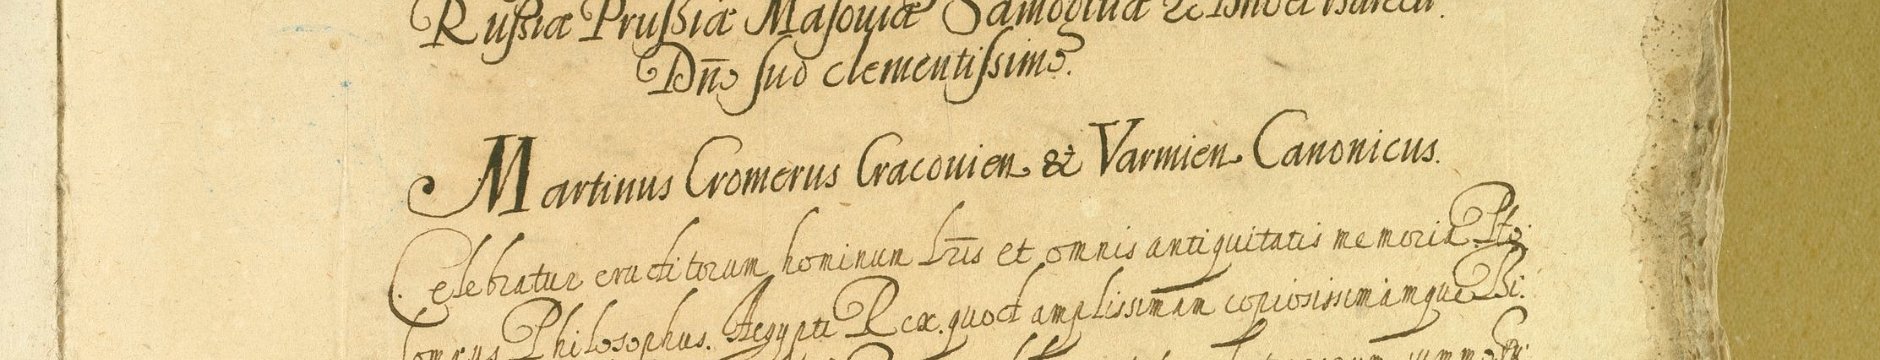 Russiæ Prussiæ Masouiæ Samogitiæ &c
Dño suo clementissimo.
Martinus Cromerus Cracouien. & Varmien. Canonicus.
Celebratur eruditorum hominum lr̄is et omnis antiquitatis memoria Pto:
lomeus Philosophus. Aegypti Rex. quod amplissimam copiosissimamque Bi: